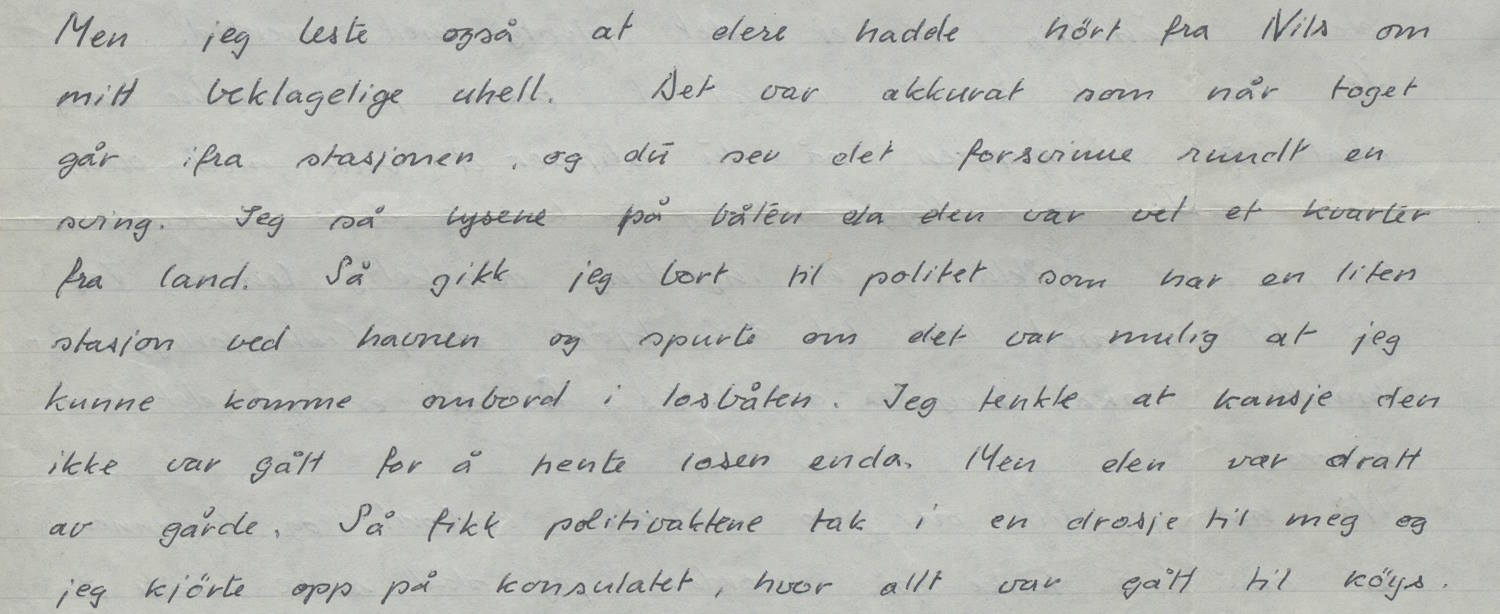 Men jeg leste også at dere hadde hört fra Nils om
mitt beklagelige uhell. Det var akkurat som når toget
går ifra stasjonen, og du ser det forsvinne rundt en
sving. Jeg så lysene på båten da den var vel et kvarter
fra land. Så gikk jeg bort til politet som har en liten
stasjon ved havnen og spurte om det var mulig at jeg
kunne komme ombord i losbåten. Jeg tenkte at kansje den
ikke var gått for å hente losen enda. Men den var dratt
av gårde. Så fikk politivaktene tak i en drosje til meg og
jeg kjörte opp på konsulatet, hvor allt var gått til köys.